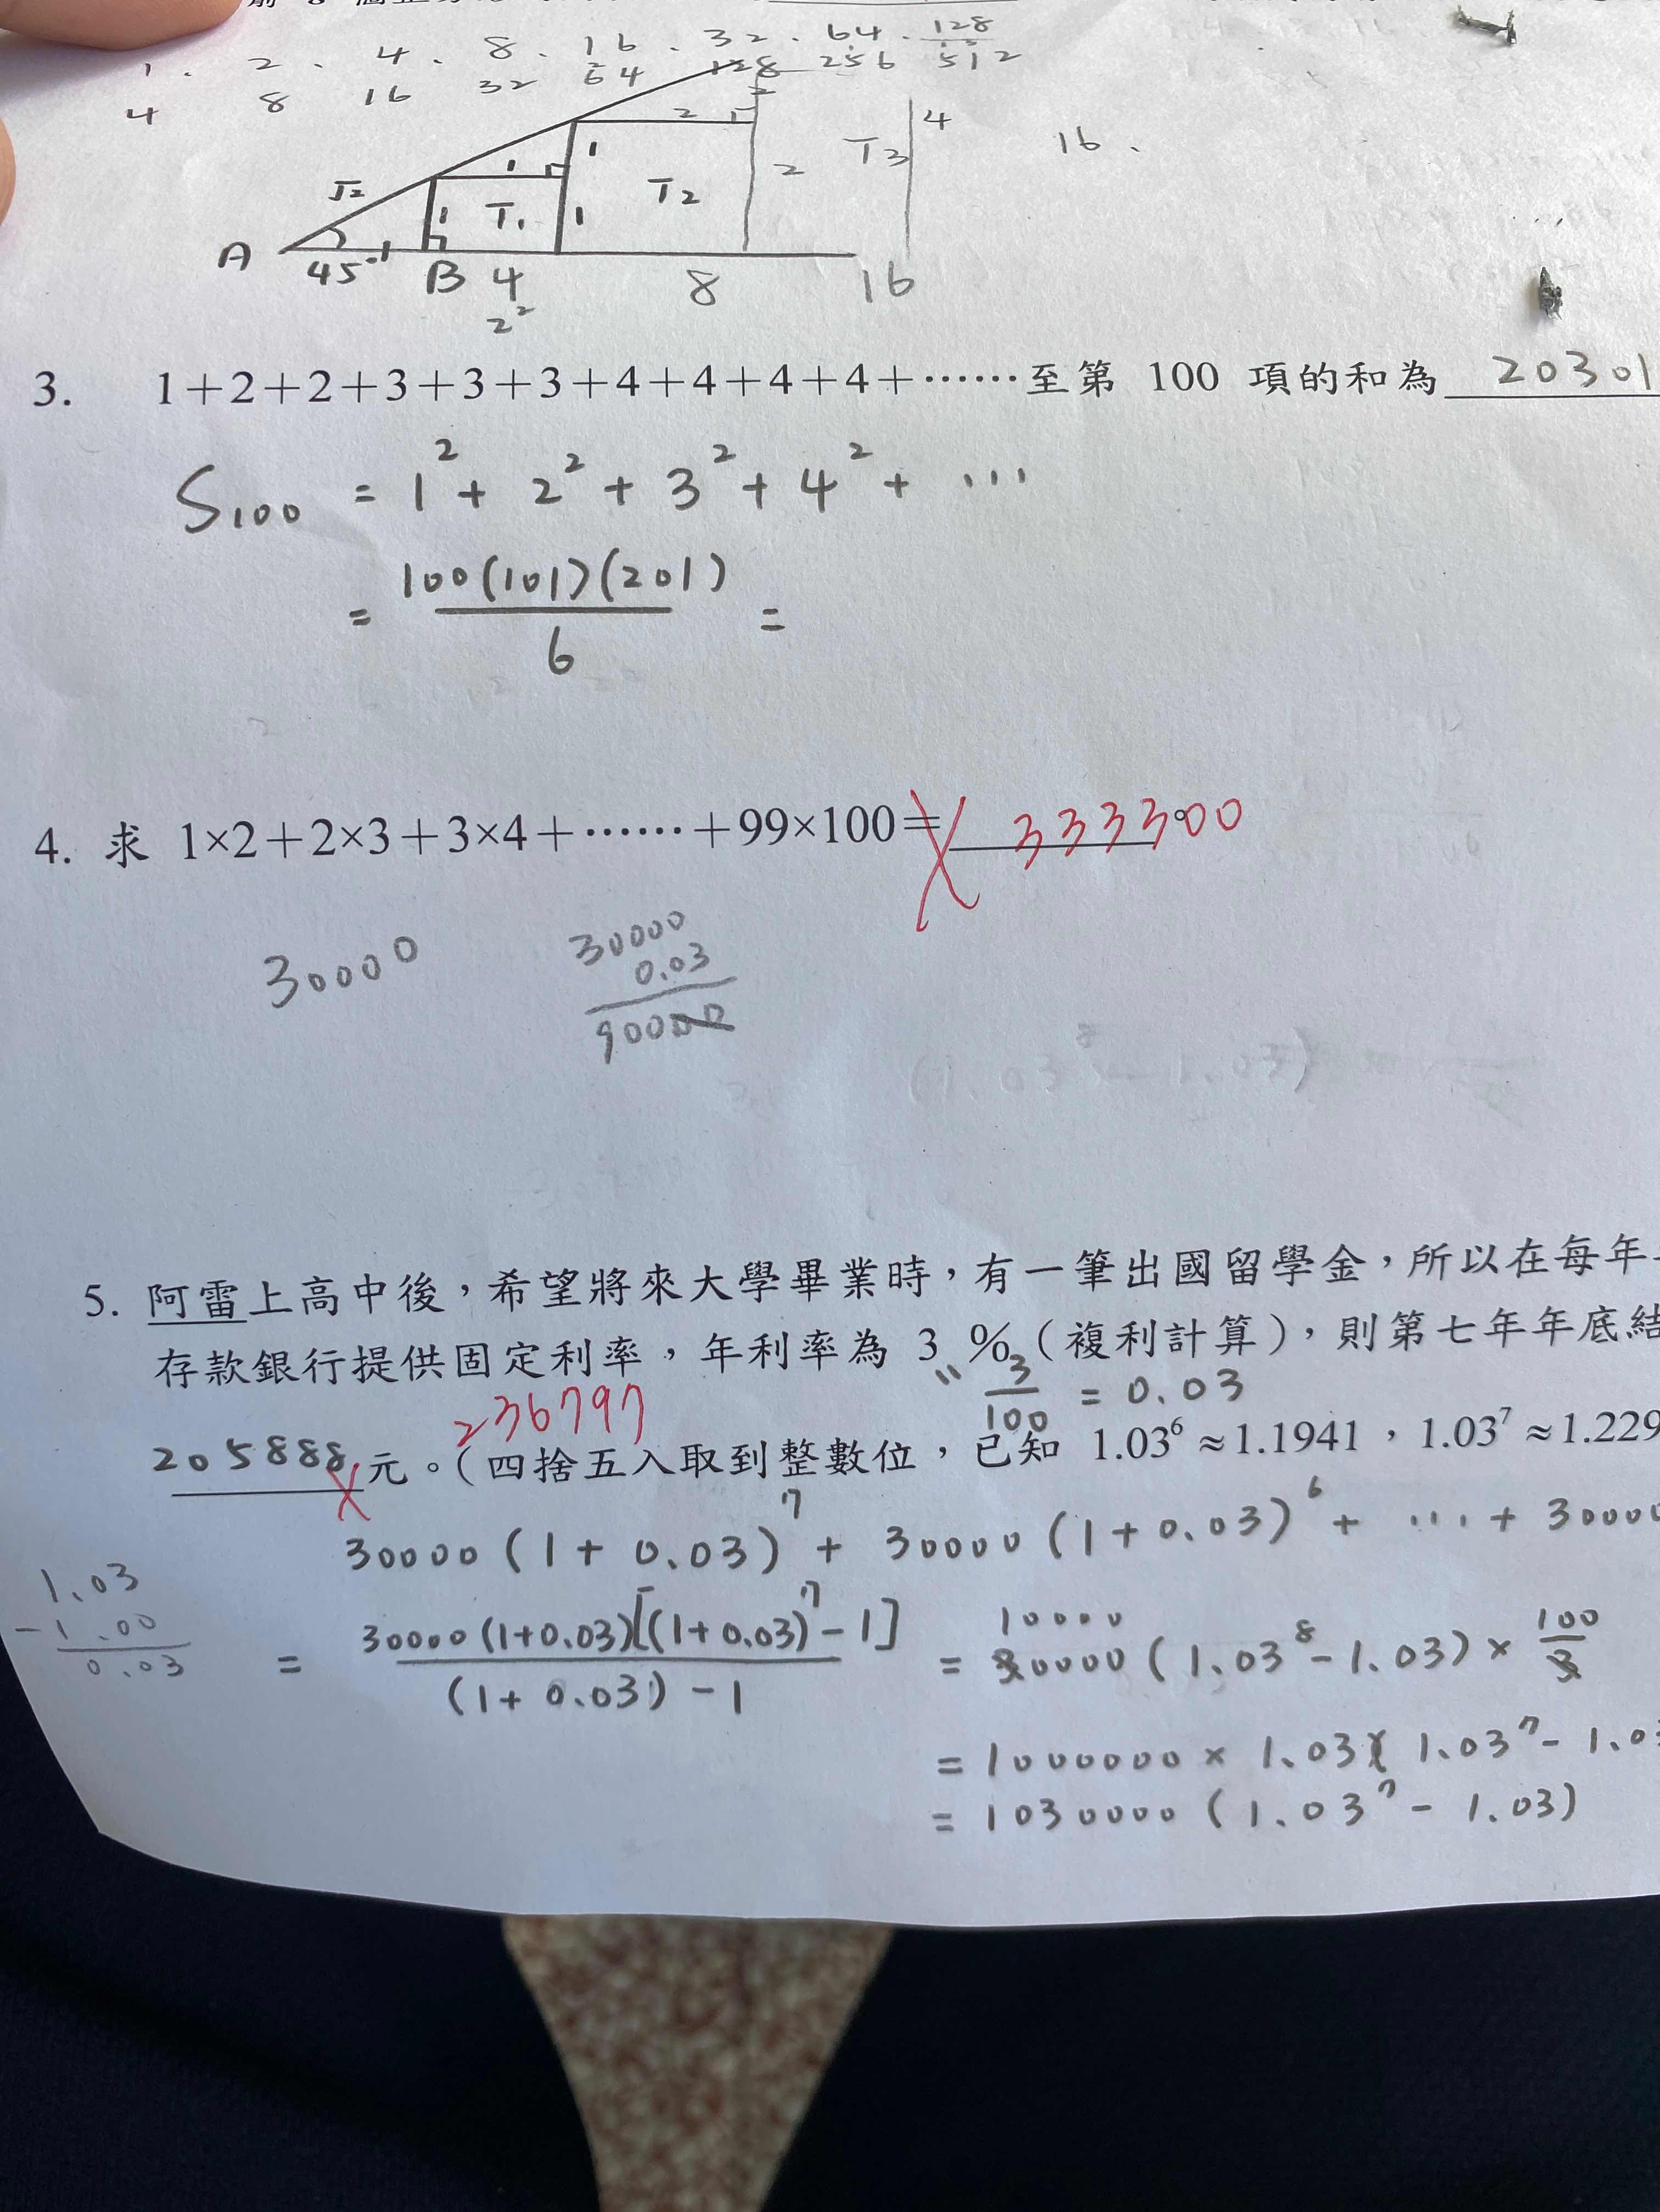 1 . 2 . 4 . 8 . 16 . 32 . 64 . 128
4 8 16 32 64 128 256 512
√2 1 1 1 1 2 2 2 4
T1 T2 T3 16 .
A 45° 1 B 4 8 16
2²
3. 1+2+2+3+3+3+4+4+4+4+⋯⋯至第 100 項的和為 20301
S₁₀₀ = 1² + 2² + 3² + 4² + ⋯
= 100(101)(201) / 6 =
4. 求 1×2+2×3+3×4+⋯⋯+99×100= 333300
30000 30000
0.03
90000
5. 阿雷上高中後，希望將來大學畢業時，有一筆出國留學金，所以在每年
存款銀行提供固定利率，年利率為 3 %（複利計算），則第七年年底結
3/100 = 0.03
236797
205888 元。（四捨五入取到整數位，已知 1.03⁶≈1.1941，1.03⁷≈1.229
30000(1+0.03)⁷ + 30000(1+0.03)⁶ + ⋯ + 30000
1.03
-1.00
0.03
= 30000(1+0.03)[(1+0.03)⁷-1] / (1+0.03)-1 = 30000(1.03⁸-1.03) × 100/3
10000
= 1000000 × 1.03( 1.03⁷ - 1.03
= 1030000 ( 1.03⁷ - 1.03)